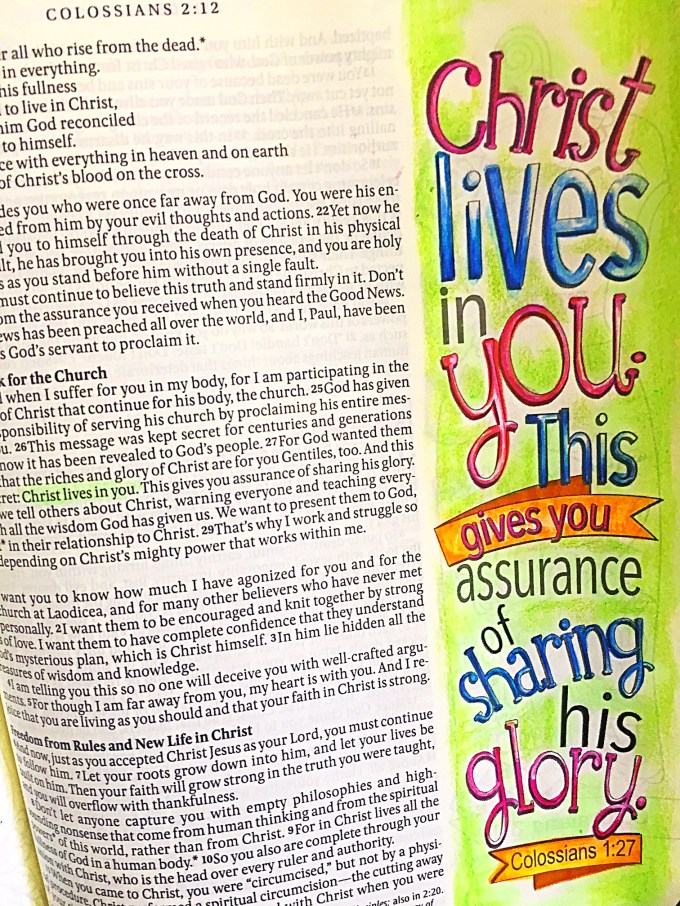 COLOSSIANS 2:12
r all who rise from the dead.*
in everything.
his fullness
to live in Christ,
him God reconciled
to himself.
ce with everything in heaven and on earth
of Christ's blood on the cross.
des you who were once far away from God. You were his en-
ed from him by your evil thoughts and actions. 22Yet now he
you to himself through the death of Christ in his physical
lt, he has brought you into his own presence, and you are holy
s as you stand before him without a single fault.
must continue to believe this truth and stand firmly in it. Don't
om the assurance you received when you heard the Good News.
ews has been preached all over the world, and I, Paul, have been
s God's servant to proclaim it.
k for the Church
when I suffer for you in my body, for I am participating in the
of Christ that continue for his body, the church. 25God has given
ponsibility of serving his church by proclaiming his entire mes-
u. 26This message was kept secret for centuries and generations
now it has been revealed to God's people. 27For God wanted them
hat the riches and glory of Christ are for you Gentiles, too. And this
ret: Christ lives in you. This gives you assurance of sharing his glory.
we tell others about Christ, warning everyone and teaching every-
h all the wisdom God has given us. We want to present them to God,
* in their relationship to Christ. 29That's why I work and struggle so
depending on Christ's mighty power that works within me.
want you to know how much I have agonized for you and for the
hurch at Laodicea, and for many other believers who have never met
personally. 2I want them to be encouraged and knit together by strong
s of love. I want them to have complete confidence that they understand
od's mysterious plan, which is Christ himself. 3In him lie hidden all the
reasures of wisdom and knowledge.
4I am telling you this so no one will deceive you with well-crafted argu-
ments. 5For though I am far away from you, my heart is with you. And I re-
joice that you are living as you should and that your faith in Christ is strong.
reedom from Rules and New Life in Christ
And now, just as you accepted Christ Jesus as your Lord, you must continue
to follow him. 7Let your roots grow down into him, and let your lives be
built on him. Then your faith will grow strong in the truth you were taught,
and you will overflow with thankfulness.
8Don't let anyone capture you with empty philosophies and high-
sounding nonsense that come from human thinking and from the spiritual
powers* of this world, rather than from Christ. 9For in Christ lives all the
of God in a human body.* 10So you also are complete through your
with Christ, who is the head over every ruler and authority.
When you came to Christ, you were "circumcised," but not by a physi-
procedure. Christ a spiritual circumcision—the cutting away
with Christ when you were
also in 2:20.
Christ
lives
in
you.
This
gives you
assurance
of
sharing
his
glory.
Colossians 1:27